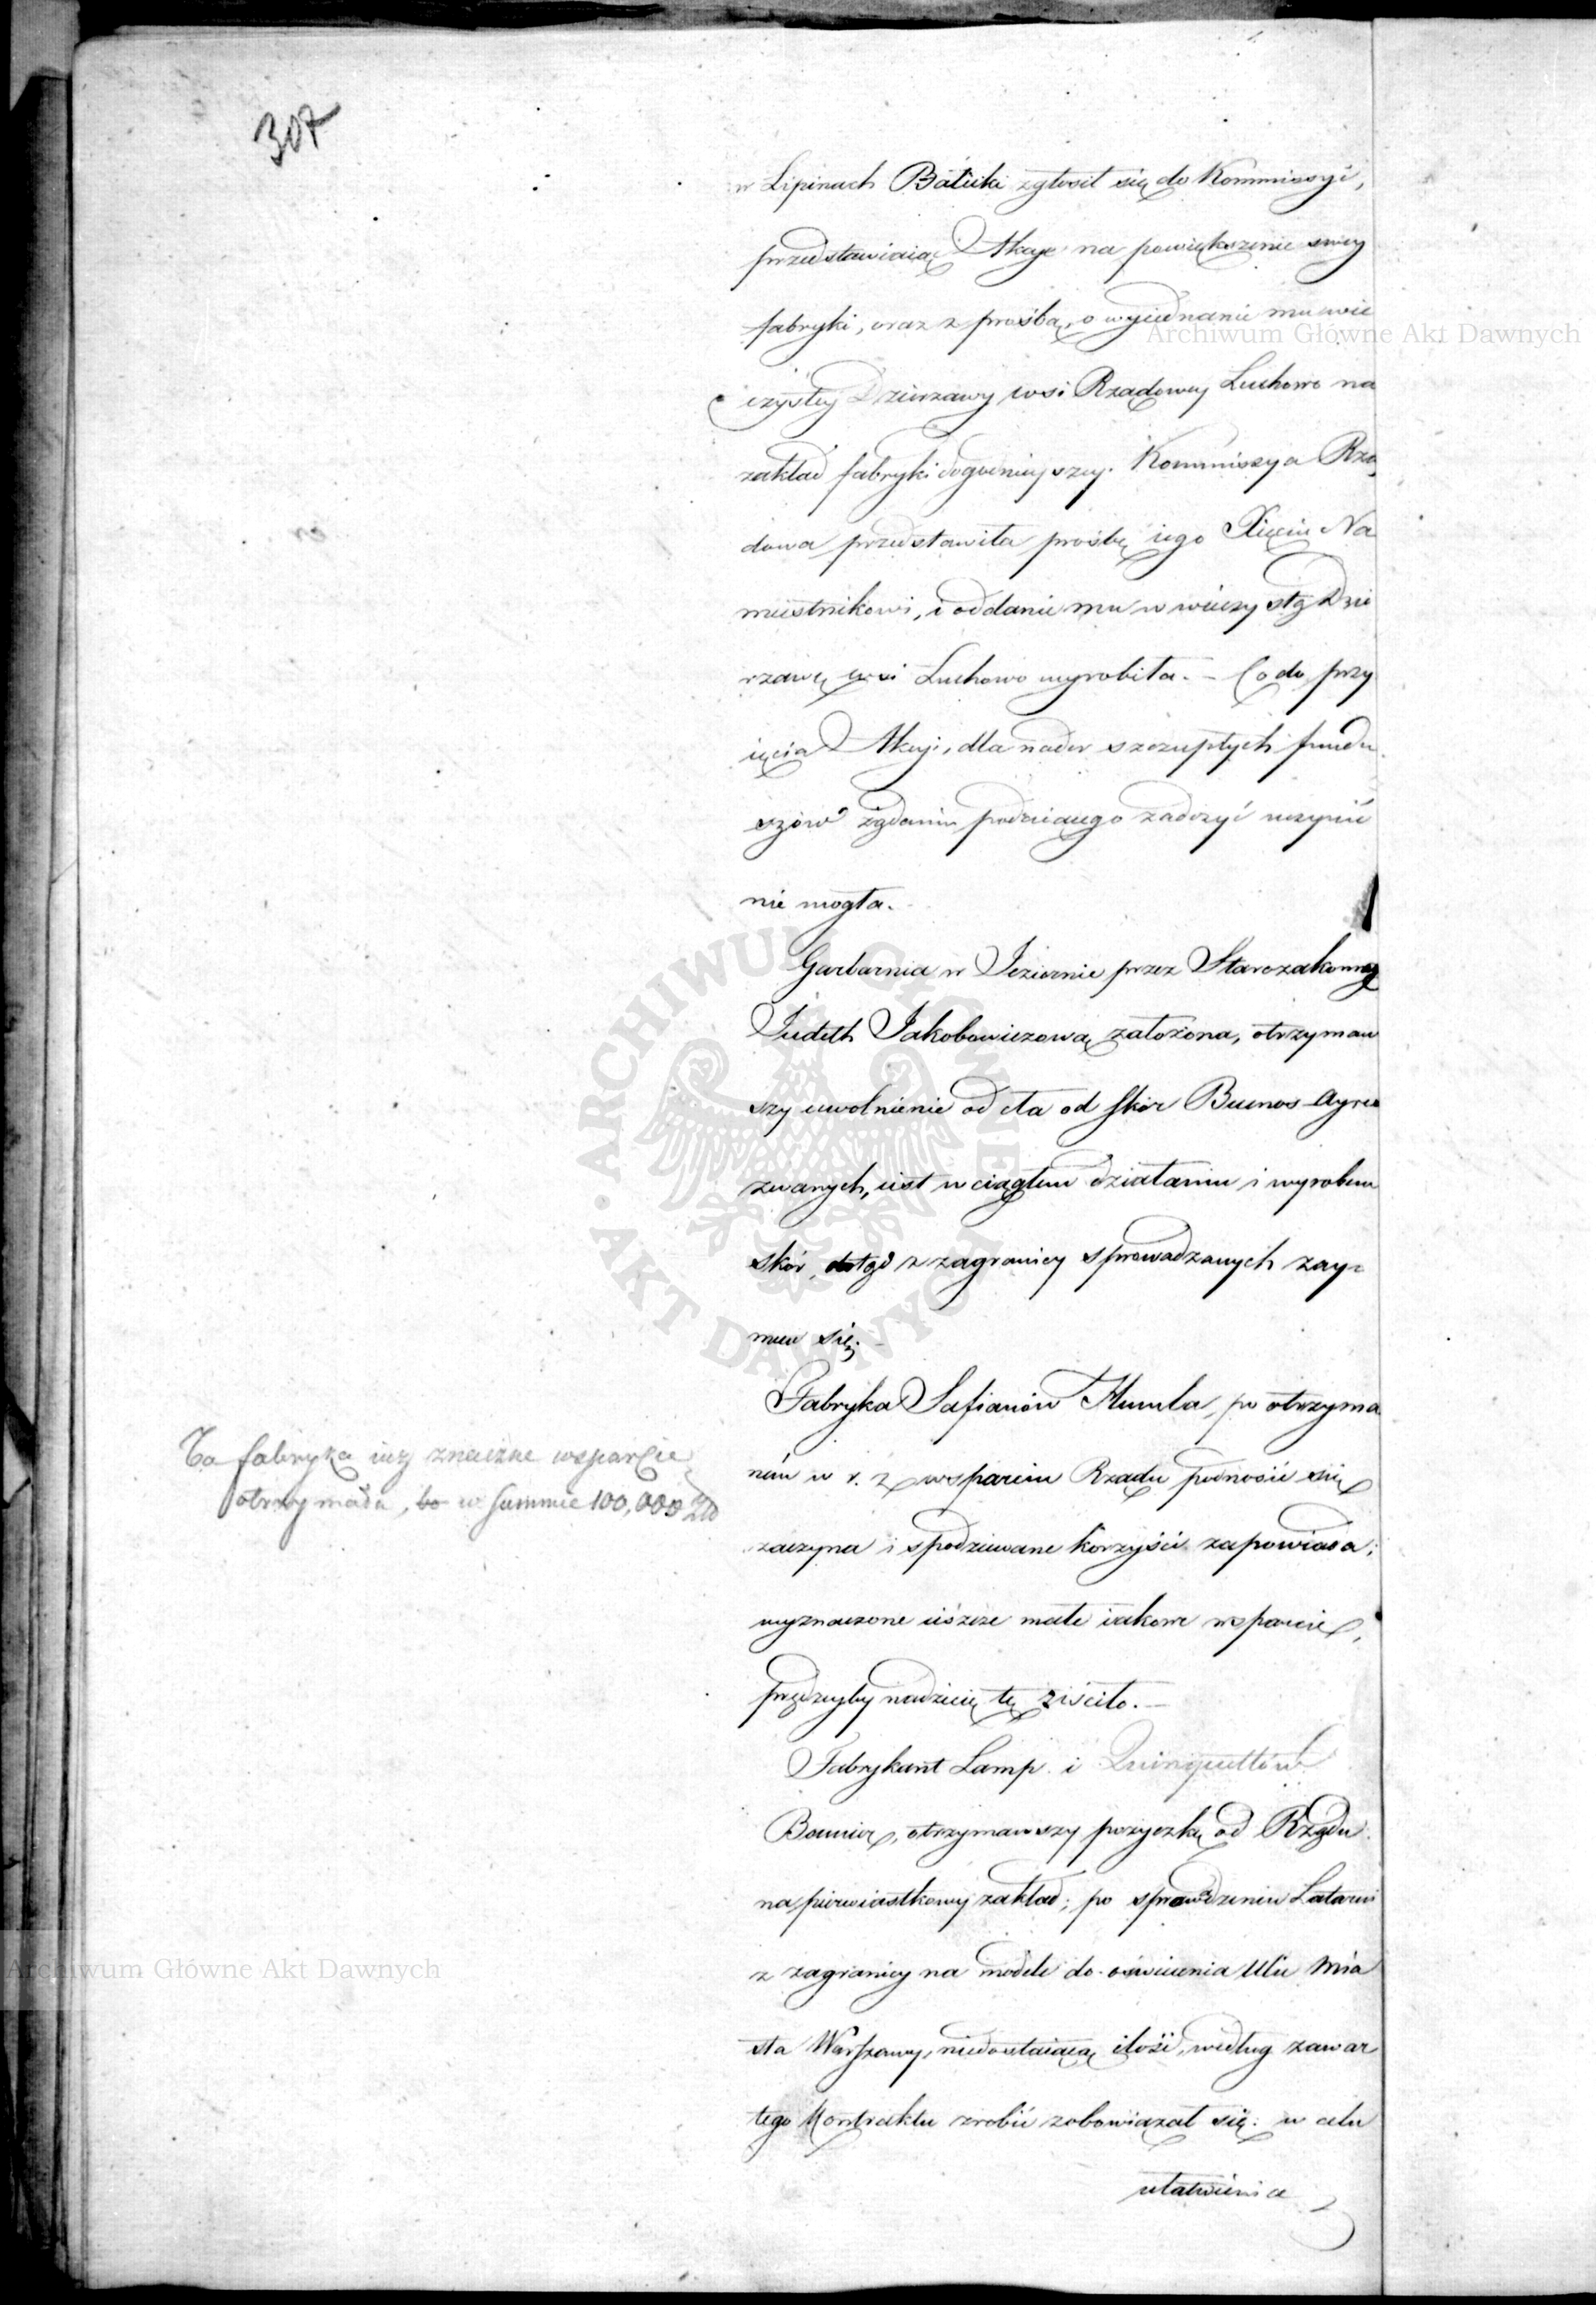 307
w Lipinach Baticki zgłosił się do Kommissyi,
przedstawiaiąc Akcye na powiększenie swey
fabryki, oraz z prośbą, o wyiednanie mu wie
czystey Dzierzawy wsi Rządowey Luchowo na
zakład fabryki dogodnieyszey. Kommissya Rzą
dowa przedstawiła prośbę iego Xięciu Na
miestnikowi, i oddanie mu w wieczystą Dzie
rzawę wsi Luchowo wyrobiła. – Co do przy
ięcia Akcyi, dla nader szczupłych fundu
szów żądaniu podaiącego zadosyć uczynić
nie mogła.
Garbarnia w Jeziornie przez Starozakonną
Judeth Jakobowiczową założona, otrzymaw
szy uwolnienie od cła od skór Buenos-Ayres
zwanych, iest w ciągłem działaniu i wyrobem
skór, dotąd z zagranicy sprowadzanych zay=
muie się. –
Fabryka Safianów, po otrzyma
niu w r. z. wsparciu Rządu podnosić się
zaczyna i spodziewane korzyści zapowiada;
wyznaczone ieszcze małe iakowe wsparcie,
prędzeyby nadzieię tę ziściło. –
Ta fabryka iuż znaczne wsparcie
otrzymała, bo w summie 100,000 Złp
Fabrykant Lamp i Quinquettów
otrzymawszy pożyczkę od Rządu
na pierwiastkowy zakład; po sprowadzeniu Latarni
z zagranicy na modele do oświecenia Ulic Mia
sta Warszawy, niedostaiącą ilość, według zawar
tego Kontraktu zrobić zobowiązał się: w celu
ułatwienia
Archiwum Główne Akt Dawnych
Archiwum Główne Akt Dawnych
ARCHIWUM GŁÓWNE AKT DAWNYCH